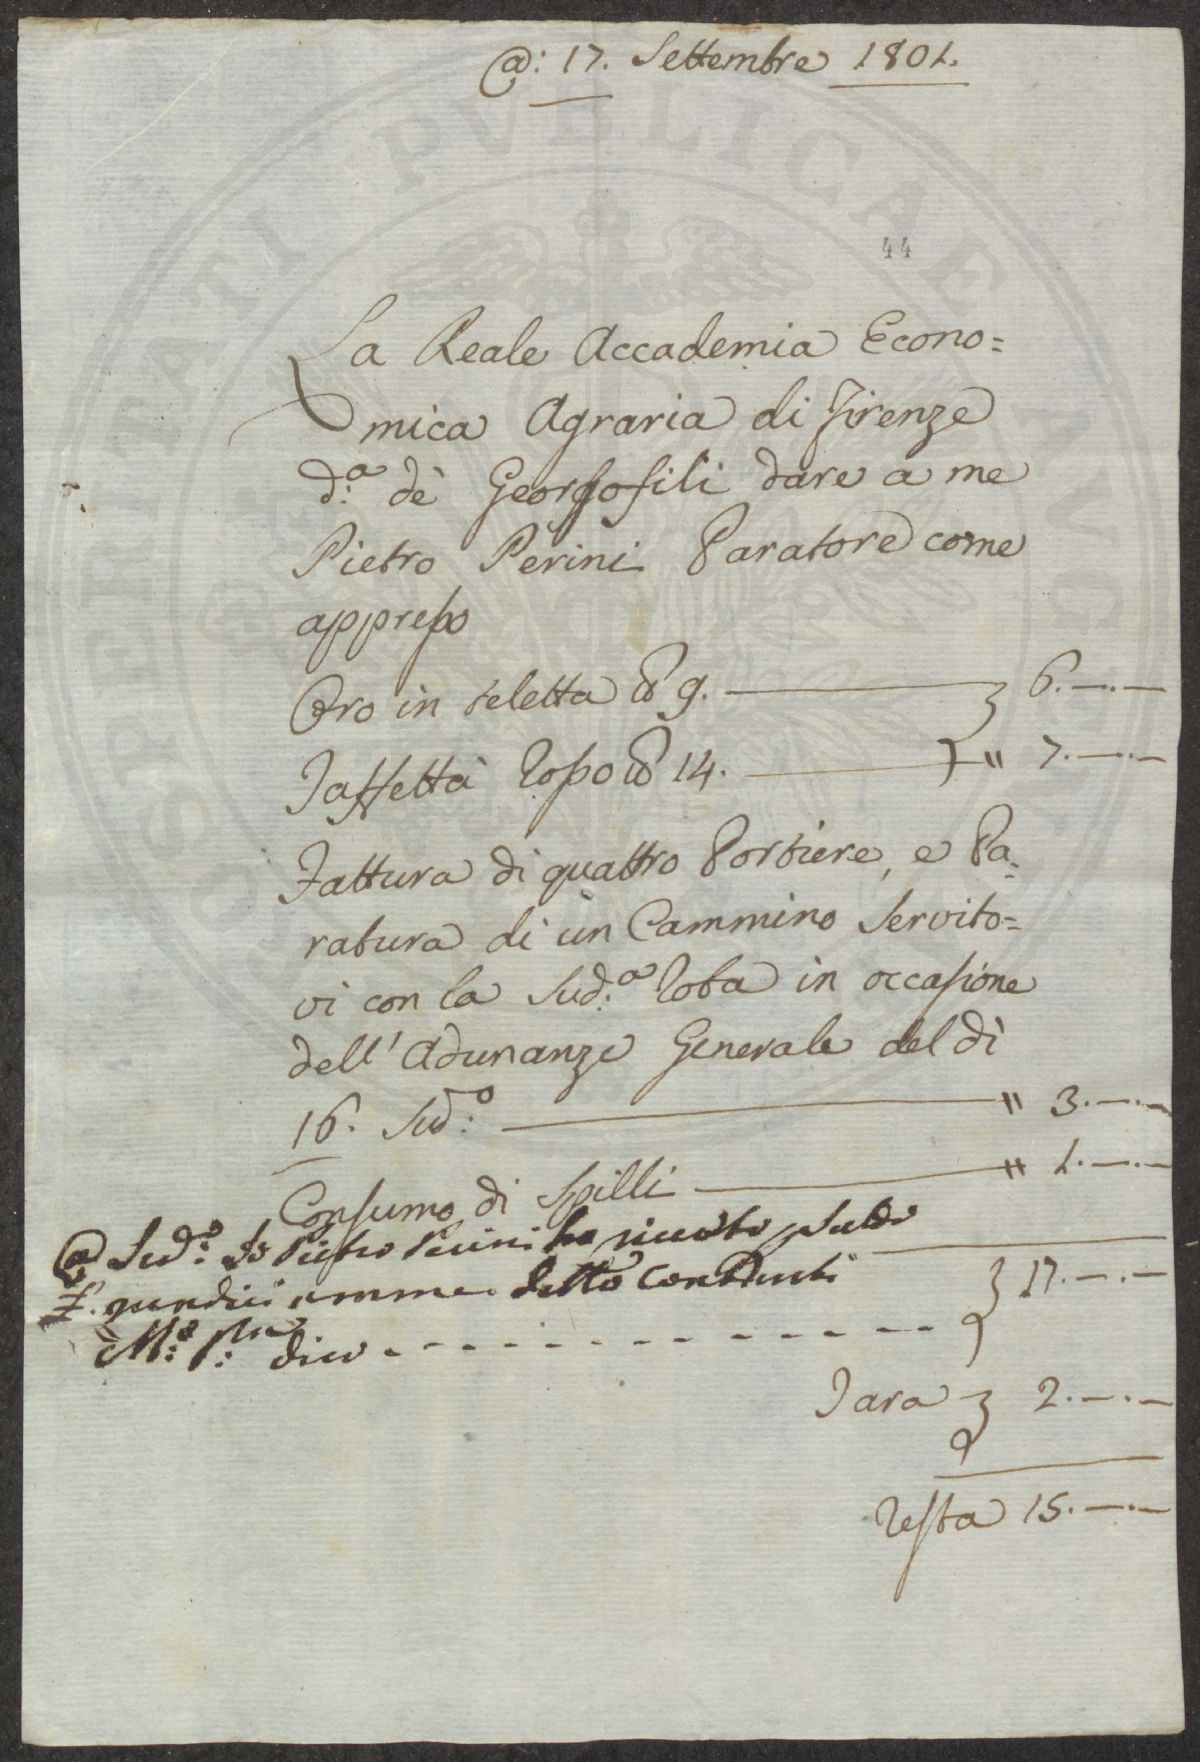 @: 17. Settembre 1801.
44
La Reale Accademia Econo=
mica Agraria di Firenze
d:ª dè Georgofili dare a me
Pietro Perini Paratore come
appresso
Oro in teletta 9. 6.—.—
Taffettà Rosso 14. " 7.—.—
Fattura di quattro Portiere, e Pa=
ratura di un Cammino Servito=
vi con la Sud:ª Roba in occasione
dell'Adunanze Generale del dì
16. Sud:º " 3.—.—
Consumo di Spilli " 1.—.—
@ Sud:º Io Pietro Perini ho ricevuto Saldo
17.—.—
dico
Tara 2.—.—
Resta 15.—.—
PVBLICAE